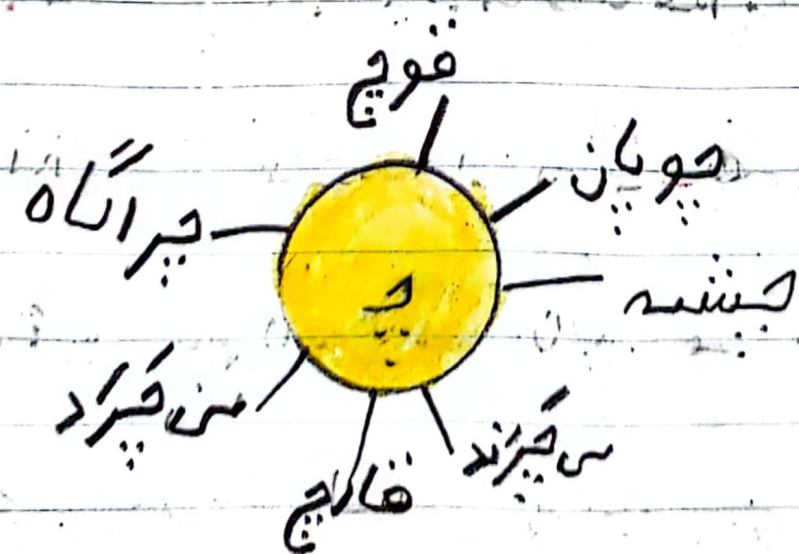 قوچ
چوپان
چشمه
می چَرَند
قارچ
می چَرَد
چراگاه
چ